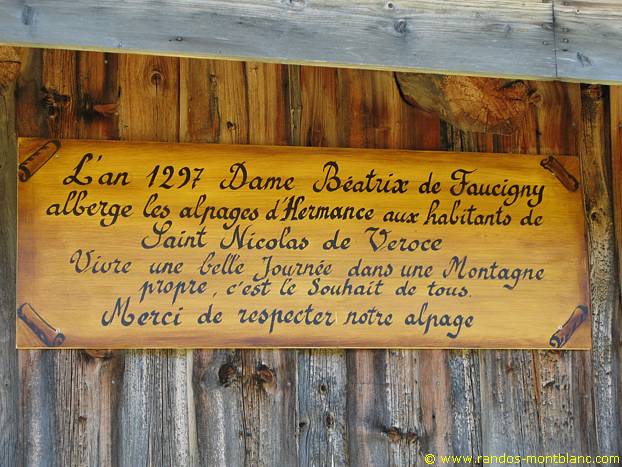 L'an 1297 Dame Béatrix de Faucigny
alberge les alpages d'Hermance aux habitants de
Saint Nicolas de Veroce
Vivre une belle Journée dans une Montagne
propre, c'est le Souhait de tous.
Merci de respecter notre alpage
© www.randos-montblanc.com